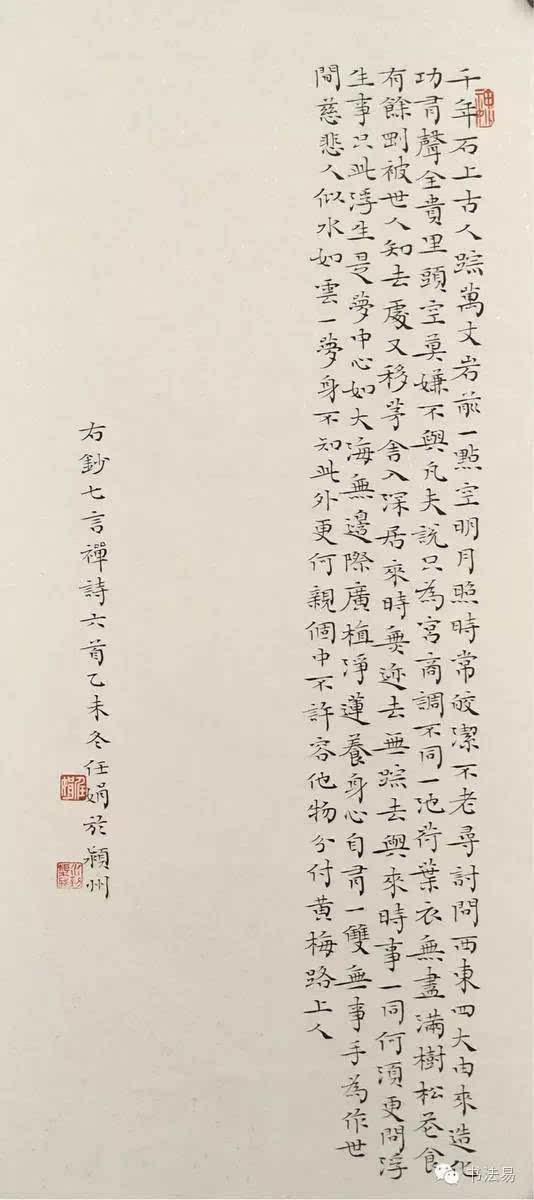 千年石上古人踪萬丈岩前一點空明月照時常皎潔不老尋討問西東四大由來造化
功有聲全貴里頭空莫嫌不與凡夫說只為宮商調不同一池荷葉衣無盡滿樹松花食
有餘剛被世人知去處又移茅舍入深居來時無迹去無踪去與來時事一同何須更問浮
生事只此浮生是夢中心如大海無邊際廣植淨蓮養身心自有一雙無事手為作世
間慈悲人似水如雲一夢身不知此外更何親個中不許容他物分付黃梅路上人
右鈔七言禪詩六首乙未冬任娟於潁州
任娟
书法易